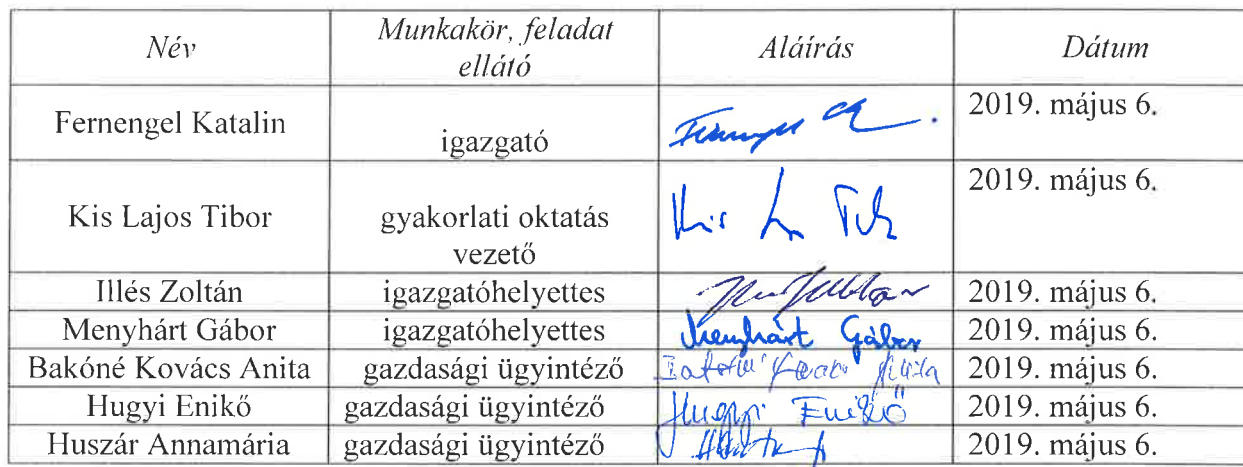 Név Munkakör, feladat ellátó Aláírás Dátum
Fernengel Katalin igazgató 2019. május 6.
Kis Lajos Tibor gyakorlati oktatás vezető Kis 2019. május 6.
Illés Zoltán igazgatóhelyettes 2019. május 6.
Menyhárt Gábor igazgatóhelyettes Menyhárt Gábor 2019. május 6.
Bakóné Kovács Anita gazdasági ügyintéző 2019. május 6.
Hugyi Enikő gazdasági ügyintéző Hugyi Enikő 2019. május 6.
Huszár Annamária gazdasági ügyintéző 2019. május 6.